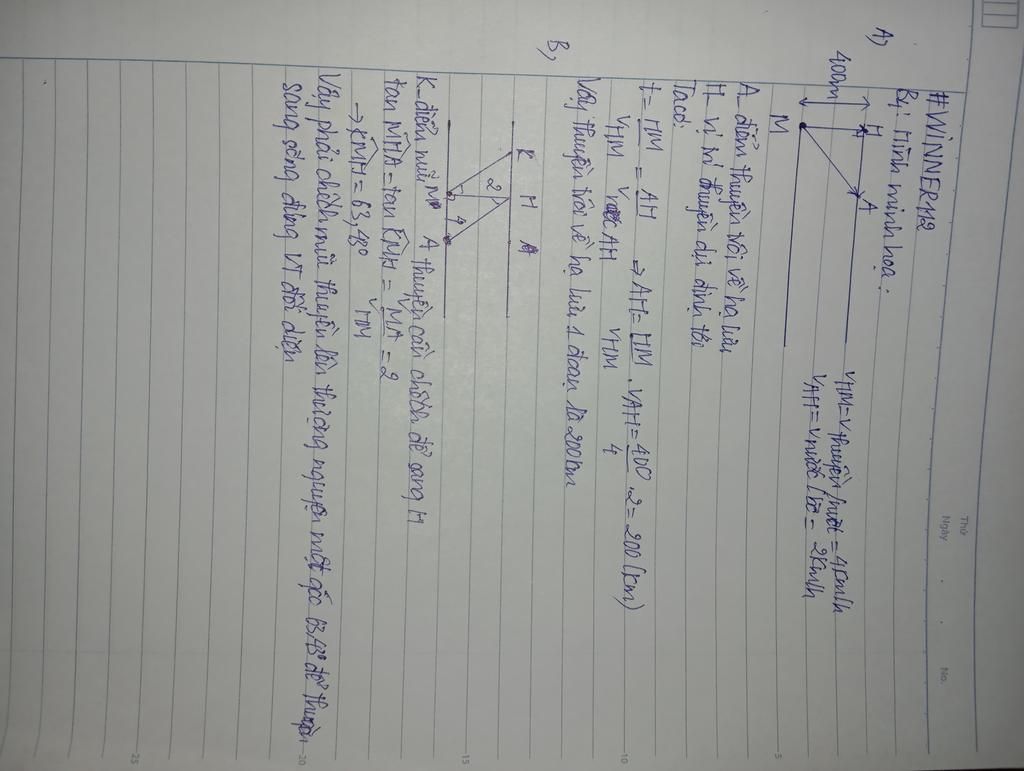 Thứ
Ngày . . No.
#WINNER112
By: Hình minh hoạ:
A)
400m
H A
M
vHM = v thuyền/nước = 4km/h
vAH = v nước/bờ = 2km/h
A - điểm thuyền trôi về hạ lưu
H - vị trí thuyền dự định tới
Ta có:
t = HM/vHM = AH/vnước AH → AH = HM/vHM . vAH = 400/4 . 2 = 200 (km)
Vậy thuyền trôi về hạ lưu 1 đoạn là 200km
B)
K H A
2
4
M
K - điểm mũi thuyền cần chếch để sang H
tan MHA = tan KMH = vMA/vHM = 2
→ KMH = 63,43°
Vậy phải chếch mũi thuyền lên thượng nguyện một góc 63,43° để thuyền
sang sông đúng vị đối diện
5
10
15
20
25